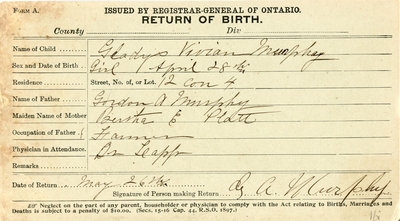 FORM A. ISSUED BY REGISTRAR-GENERAL OF ONTARIO.
RETURN OF BIRTH.
County Div
Name of Child Gladys Vivian Murphy
Sex and Date of Birth Girl April 28th
Residence Street, No. of, or Lot. 12 Con 4
Name of Father Gordon A Murphy
Maiden Name of Mother Bertha E Platt
Occupation of Father Farmer
Physician in Attendance. Dr Lapp
Remarks
Date of Return May 26th G A Murphy
Signature of Person making Return
Neglect on the part of any parent, householder or physician to comply with the Act relating to Births, Marriages and
Deaths is subject to a penalty of $10.00. (Secs. 15-16 Cap. 44. R.S.O, 1897.)